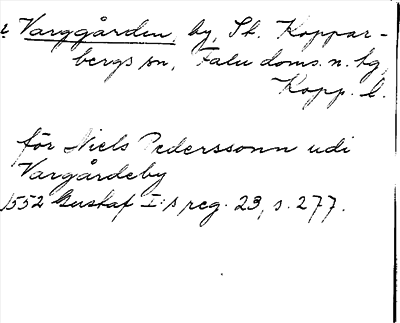 Varggården, by, St. Koppar-
bergs sn, Falu doms. n. tg,
Kopp. l.
för Niels Pederssonn udi
Vargårdeby
1552 Gustaf I:s reg. 23, s. 277.